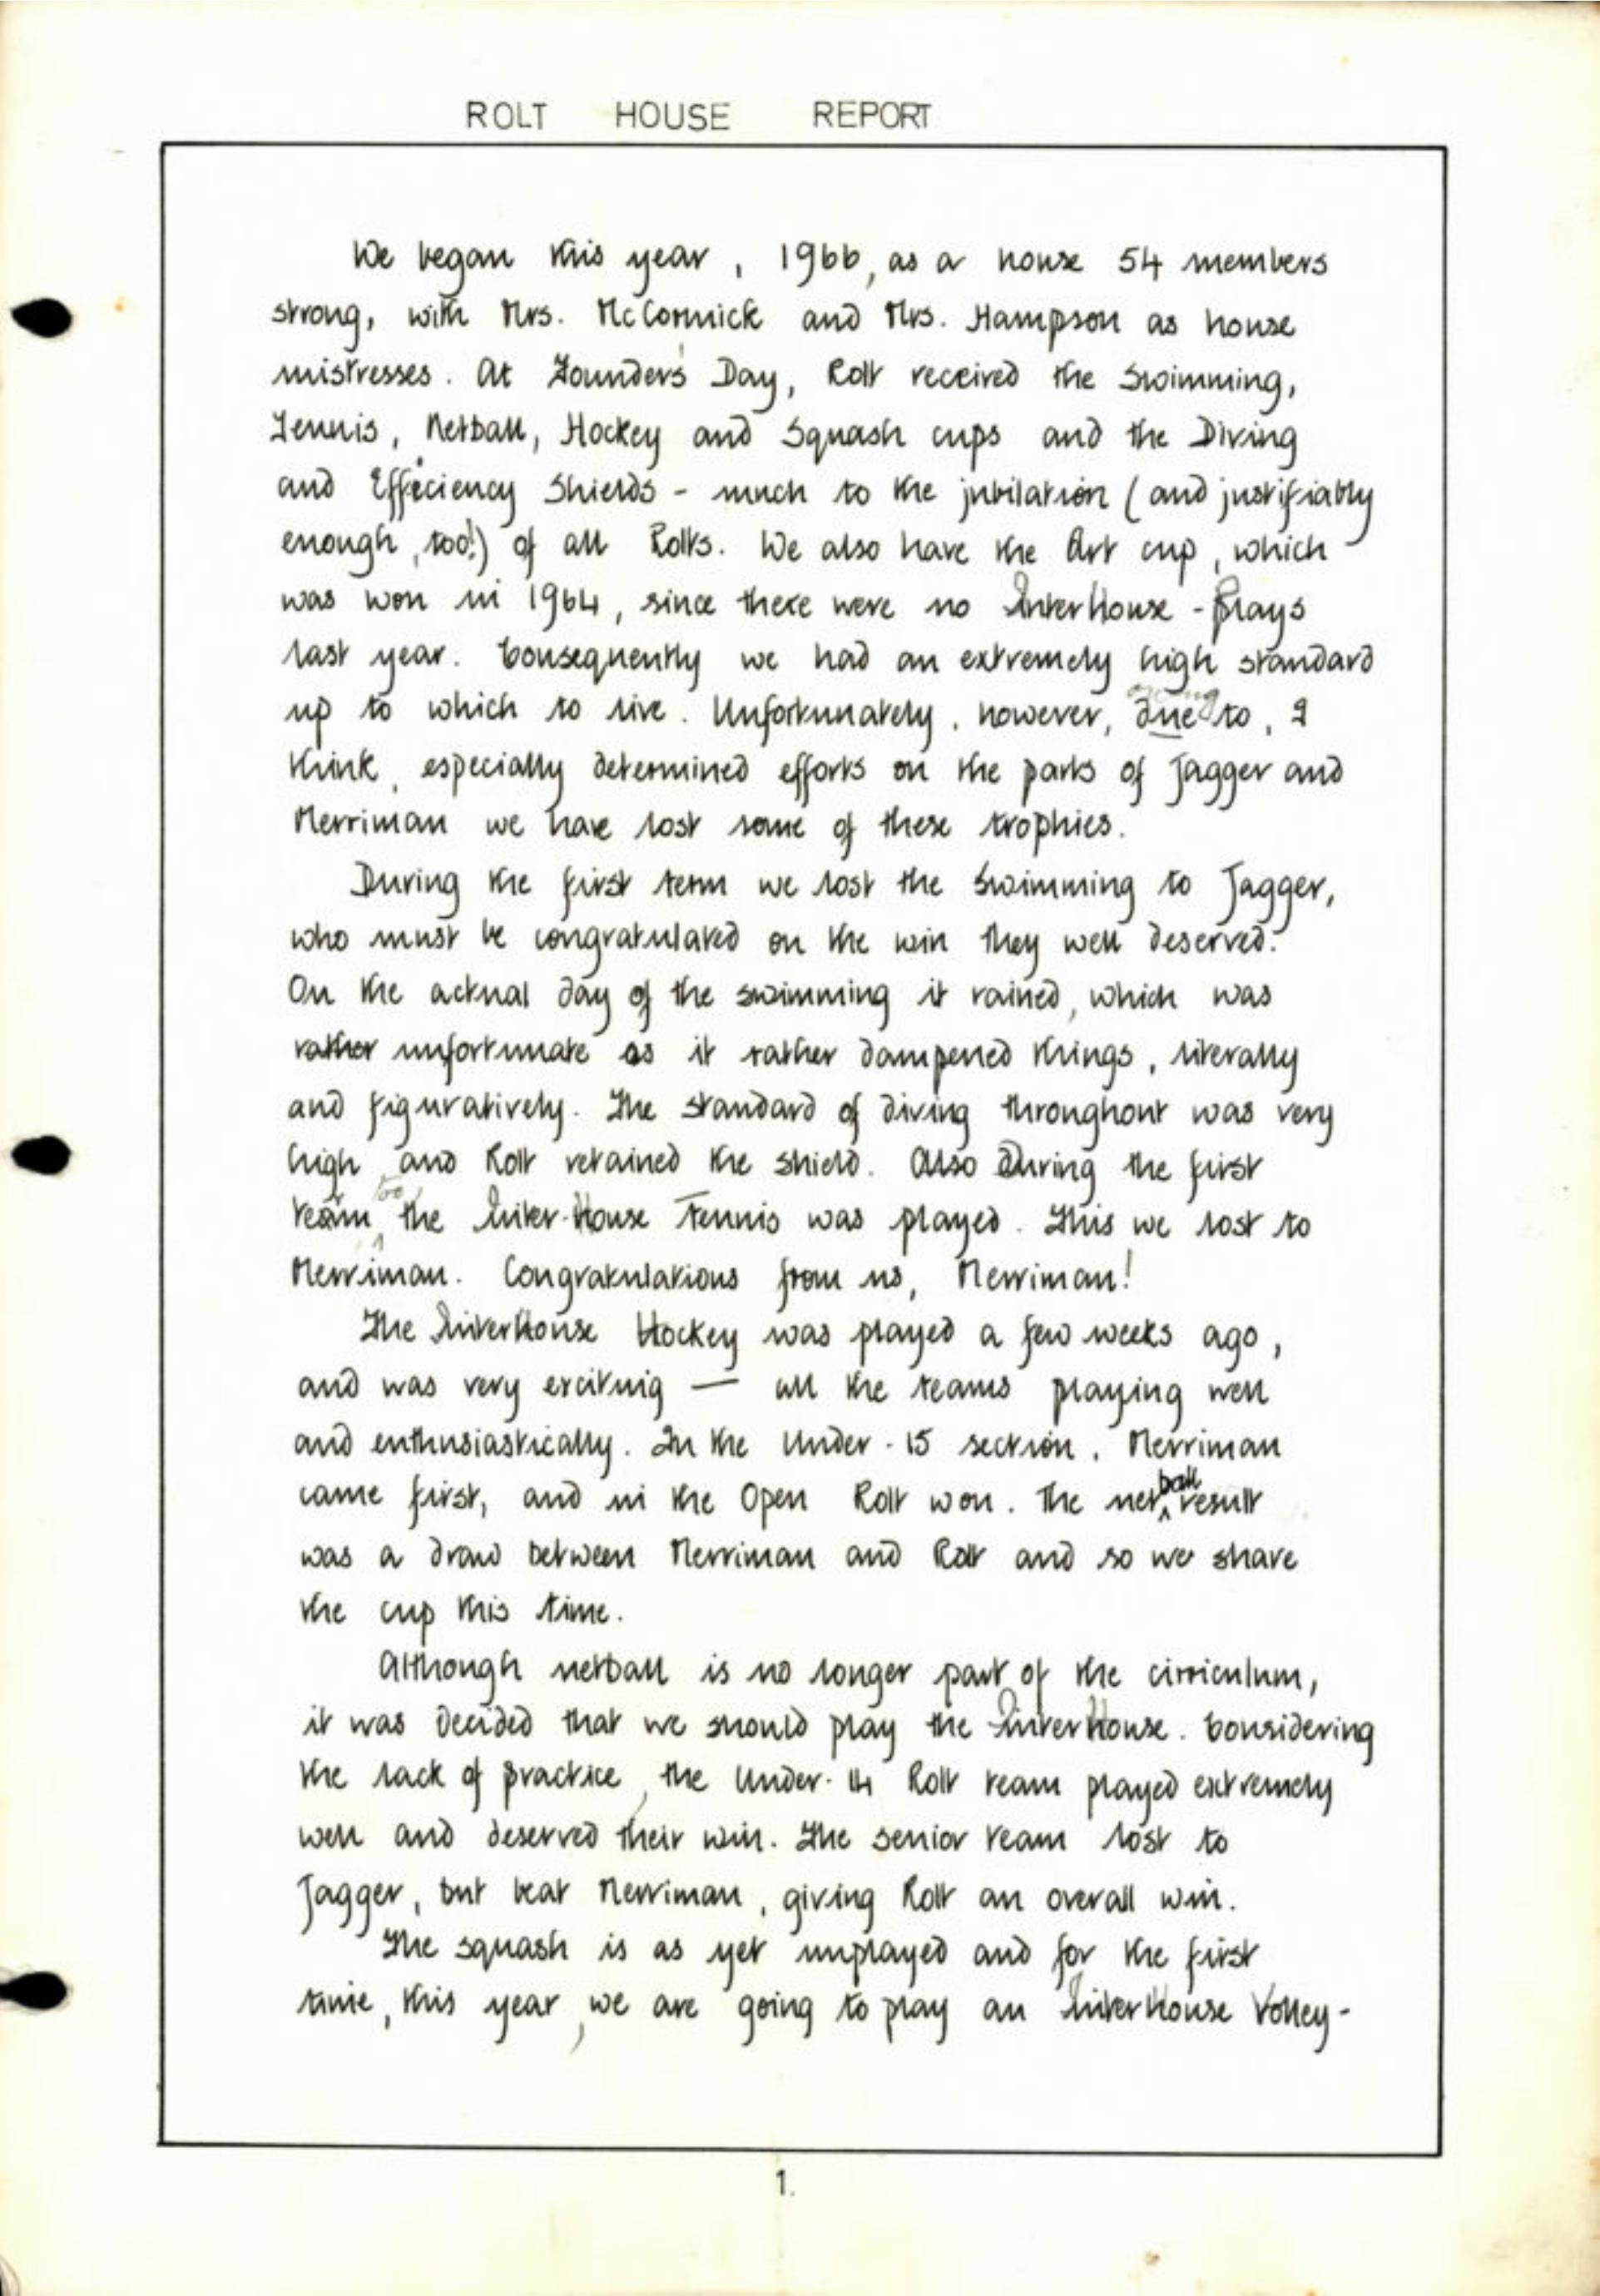 ROLT HOUSE REPORT
We began this year, 1966, as a house 54 members
strong, with Mrs. McCormick and Mrs. Hampson as house
mistresses. At Founders' Day, Rolt received the Swimming,
Tennis, Netball, Hockey and Squash cups and the Diving
and Efficiency Shields - much to the jubilation (and justifiably
enough, too!) of all Rolts. We also have the Art cup, which
was won in 1964, since there were no InterHouse - Plays
last year. Consequently we had an extremely high standard
owing
up to which to live. Unfortunately, however, due to, I
think, especially determined efforts on the parts of Jagger and
Merriman we have lost some of these trophies.
During the first term we lost the Swimming to Jagger,
who must be congratulated on the win they well deserved.
On the actual day of the swimming it rained, which was
rather unfortunate as it rather dampened things, literally
and figuratively. The standard of diving throughout was very
high, and Rolt retained the shield. Also During the first
too,
team the Inter-House Tennis was played. This we lost to
Merriman. Congratulations from us, Merriman!
The InterHouse Hockey was played a few weeks ago,
and was very exciting — all the teams playing well
and enthusiastically. In the Under-15 section, Merriman
ball
came first, and in the Open Rolt won. The net result
was a draw between Merriman and Rolt and so we share
the cup this time.
Although netball is no longer part of the cirriculum,
it was decided that we should play the InterHouse. Considering
the lack of practice, the Under-14 Rolt team played extremely
well and deserved their win. The senior team lost to
Jagger, but beat Merriman, giving Rolt an overall win.
The squash is as yet unplayed and for the first
time, this year, we are going to play an InterHouse Volley-
1.